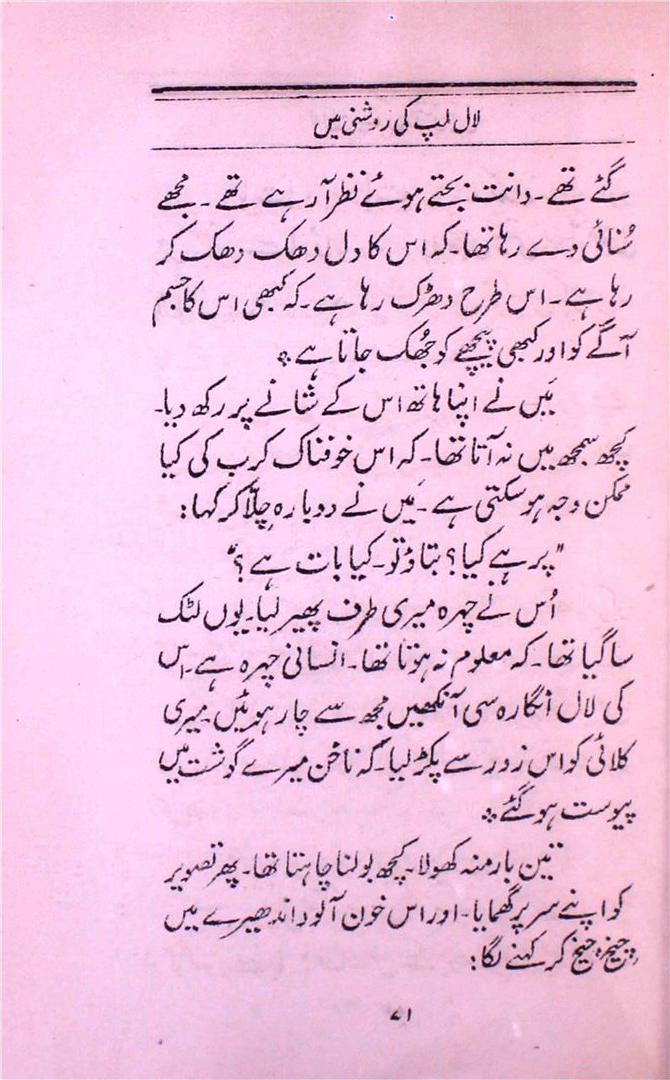 لال لمپ کی روشنی میں
گئے تھے۔ دانت بجتے ہوئے نظر آ رہے تھے۔ مجھے
سُنائی دے رہا تھا۔ کہ اس کا دل دھک دھک کر
رہا ہے۔ اس طرح دھڑک رہا ہے۔ کہ کبھی اس کا جسم
آگے کو اور کبھی پیچھے کو جھُک جاتا ہے ؞
مَیں نے اپنا ہاتھ اس کے شانے پر رکھ دیا۔
کچھ سمجھ میں نہ آتا تھا۔ کہ اس خوفناک کرب کی کیا
ممکن وجہ ہو سکتی ہے۔ مَیں نے دوبارہ چلّا کر کہا:
"پر ہے کیا؟ بتاؤ تو۔ کیا بات ہے؟"
اُس نے چہرہ میری طرف پھیر لیا۔ یوں لٹک
سا گیا تھا۔ کہ معلوم نہ ہوتا تھا۔ انسانی چہرہ ہے۔ اس
کی لال انگارہ سی آنکھیں مجھ سے چار ہوئیں۔ میری
کلائی کو اس زور سے پکڑ لیا۔ کہ ناخن میرے گوشت میں
پیوست ہو گئے ؞
تین بار منہ کھولا۔ کچھ بولنا چاہتا تھا۔ پھر تصویر
کو اپنے سر پر گھمایا۔ اور اس خون آلود اندھیرے میں
چیخ چیخ کر کہنے لگا:
۷۱